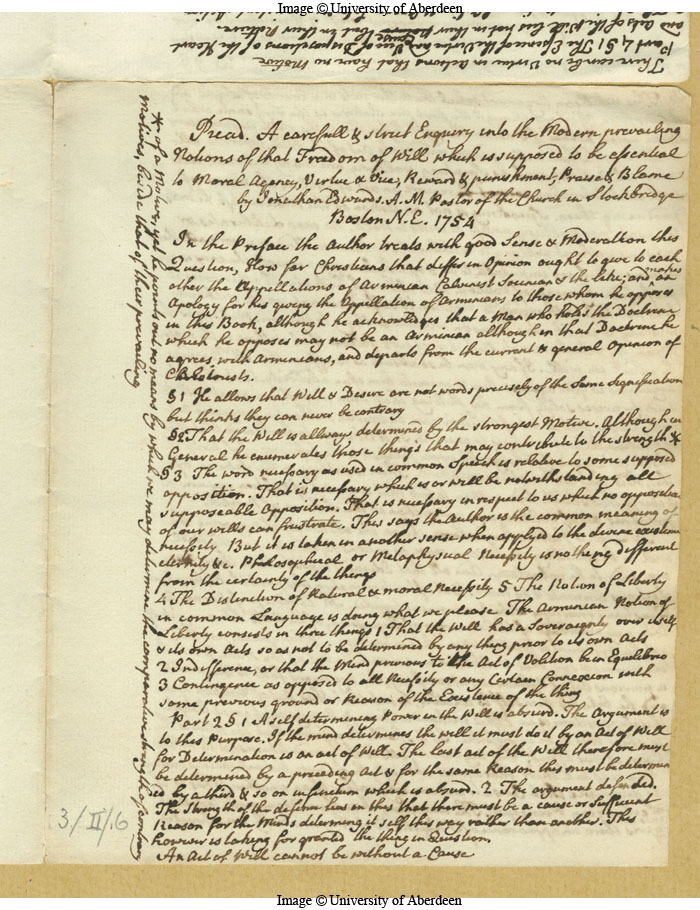 Image © University of Aberdeen
and acts of the Will lies not in their Cause but in their Nature.
Part 4, §1 The Essence of the Virtue and Vice of Dispositions of the Heart
There can be no Virtue in actions that have no Motive
Read. A carefull & strict Enquery into the Modern prevailing
Notions of that Freedom of Will which is supposed to be essential
to Moral Agency, Virtue & Vice, Reward & punishment, Praise & Blame
by Jonathan Edwards. A.M. Pastor of the Church in Stockbridge
Boston N.E. 1754
In the Preface the Author treats with good Sense & Moderation this
Question, How far Christians that differ in Opinion ought to give to each
other the Appellations of Arminian Calvinist Socinian & the like; and makes an
Apology for his giving the Appellation of Arminians to those whom he opposes
in this Book, although he acknowledges that a Man who holds the Doctrine
which he opposes may not be an Arminian although in that Doctrine he
agrees, with Armenians, and departs from the current & general Opinion of
Calvinists.
§1 He allows that Will & Desire are not words precisely of the Same Signification
but thinks they can never be contrary
§2 That the Will is allways determined by the strongest Motive. Although in
General he enumerates those things that may contribute to the strength *
§3 The word necessary as used in common Speech is relative to some supposed
opposition. That is necessary which is or will be notwithstanding all
supposeable Opposition. That is necessary in respect to us which no opposition
of our wills can frustrate. This says the Author is the common meaning of
necessity But it is taken in another sense when applyed to the divine existence
eternity &c. Philosophical or Metaphysical Necessity is nothing different
from the certainty of the things
4 The Distinction of Natural & moral Necessity 5 The Notion of Liberty
in common Language is doing what we please The Arminian Notion of
Liberty consists in three things 1 That the Will has a Soveraignty over it self
& its own Acts so as not to be determined by any thing prior to its own Acts
2 Indifference, or that the Mind previous to the Act of Volition be in Equilibrio
3 Contingence as opposed to all Necessity or any Certain Connexion with
some previous ground or Reason of the Existence of the thing
Part 2 § 1 A self determining Power in the Will is absurd. The Argument is
to this Purpose. If the mind determines the will it must do it by an Act of Will
for Determination is an act of Will. The last act of the Will therefore must
be determined by a preceding Act & for the same Reason this must be determin
ed by a third & so on in infinitum which is absurd. 2 The argument defended.
The strength of the defense lies in this that there must be a cause or Sufficient
Reason for the Minds determing it self this way rather than another. This
however is taking for granted the thing in Question.
An Act of Will cannot be without a Cause
* of a Motive, yet he points out no means by which we may determine the comparative strength of contrary
Motives, beside that of their prevailing
3/II/16
Image © University of Aberdeen